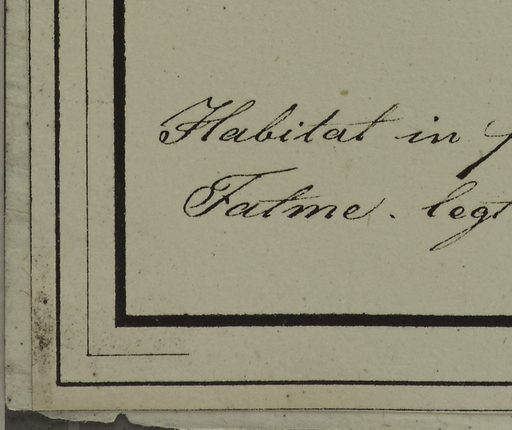 Habitat in
Fatme. legt